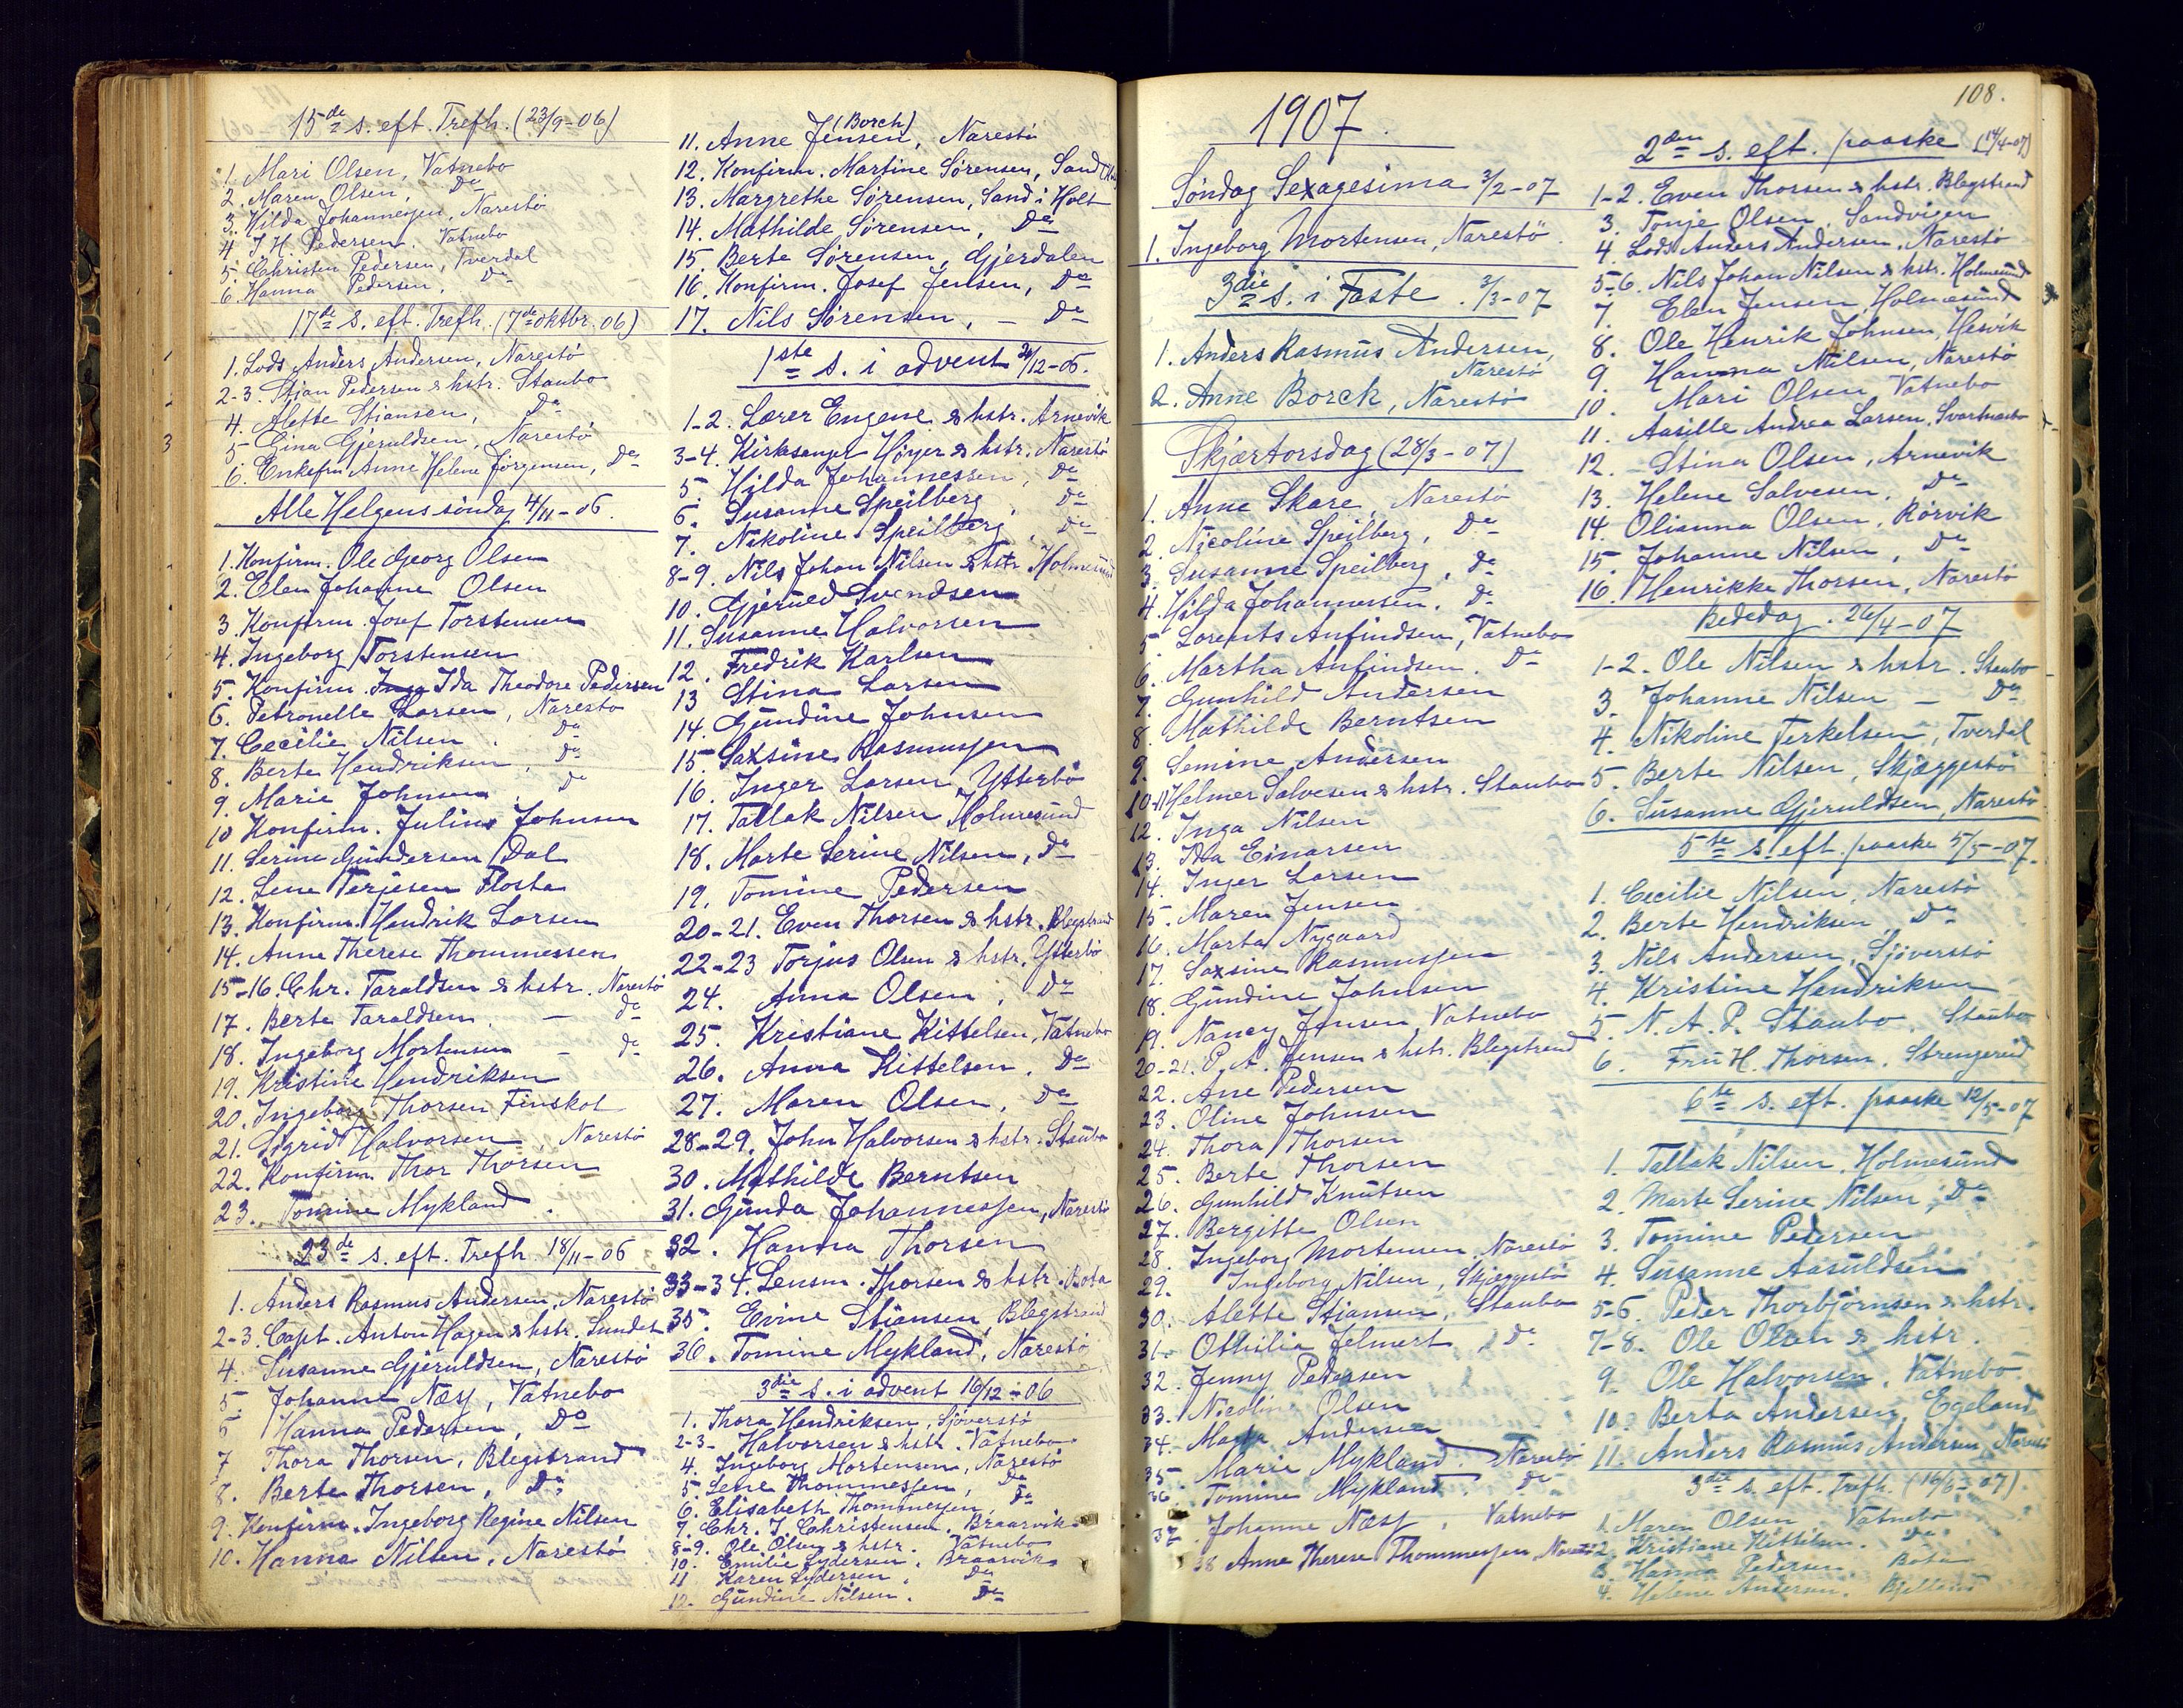 15de s. eft. Trefh. (23/9-06)
1. Mari Olsen, Vatnebo
2. Maren Olsen, Do
3. Hilda Johannessen, Narestö
4. J. H. Pedersen. Vatnebo
5. Christen Pedersen, Tverdal
6. Hanna Pedersen, Do
17de s. eft. Trefh. (7de oktbr. 06)
1. Lods Anders Andersen, Narestö
2-3. Stian Pedersen & hstr. Staubo
4. Alette Stiansen, Do
5. Gina Gjeruldsen, Narestö
6. Enkefru Anne Helene Jörgensen, Do
Alle Helgens söndag 4/11-06.
1. Konfirm. Ole Georg Olsen
2. Elen Johanne Olsen
3. Konfirm. Josef Torstensen
4. Ingeborg Torstensen
5. Konfirm. Inga Ida Theodore Pedersen
6. Petronelle Larsen, Narestö
7. Cecilie Nilsen. Do
8. Berte Hendriksen, Do
9. Marie Johnsen, Do
10 Konfirm. Julius Johnsen
11. Serine Gundersen Dal
12. Lene Terjesen Flosta
13. Konfirm. Hendrik Larsen
14. Anne Therese Thommessen
15-16. Chr. Taraldsen & hstr. Narestö
17. Berte Taraldsen. — Do
18. Ingeborg Mortensen — Do
19. Kristine Hendriksen
20. Ingeborg Thorsen Finskot
21. Sigrid Halvorsen, Narestö
22. Konfirm. Thor Thorsen
23. Tomine Mykland.
23de s. eft. Trefh. 18/11-06
1. Anders Rasmus Andersen, Narestö
2-3. Capt. Anton Hagen & hstr. Sundet
4. Susanne Gjeruldsen, Narestö
5. Johanne Næss, Vatnebo
6 Hanna Pedersen, Do
7 Thora Thorsen, Blegstrand
8. Berte Thorsen, Do
9. Konfirm. Ingeborg Regine Nilsen
10. Hanna Nilsen. Narestö
11. Anne Jensen, (Borch) Narestö
12. Konfirm. Martine Sörensen, Sand
13. Margrethe Sörensen, Sand i Holt
14. Mathilde Sörensen, Do
15. Berte Sörensen, Gjerdalen
16. Konfirm. Josef Jensen, Do
17. Nils Sörensen, — Do
1ste s. i advent /12-06.
1-2. Lærer Engene & hstr. Arnevik
3-4. Kirksanger Höyer & hstr. Narestö
5. Hilda Johannessen, Do
6. Susanne Speilberg, Do
7. Nikoline Speilberg, Do
8-9. Nils Johan Nilsen & hstr Holmesund
10. Gjeruld Svendsen
11. Susanne Halvorsen
12. Fredrik Karlsen
13 Stina Larsen
14. Gundine Johnsen
15. Saxsine Rasmussen
16. Inger Larsen, Ytterbö
17. Tallak Nilsen Holmesund
18. Marte Serine Nilsen, Do
19. Tomine Pedersen
20-21. Even Thorsen & hstr. Blegstrand
22-23 Torjus Olsen & hstr. Ytterbö
24. Anna Olsen, Do
25. Kristiane Kittelsen, Vatnebo
26. Anna Kittelsen. Do
27. Maren Olsen, Do
28-29. John Halvorsen & hstr. Staubo
30. Mathilde Berntsen
31. Gunda Johannessen, Narestö
32. Hanna Thorsen
33-34. Lensm. Thorsen & hstr. Bota
35. Evine Stiansen, Blegstrand
36. Tomine Mykland, Narestö
3die s. i advent 16/12-06
1. Thora Hendriksen, Sjöverstö
2-3- Halvorsen & hstr. Vatnebo
4. Ingeborg Mortensen, Narestö
5. Lene Thommessen, Do
6. Elisabeth Thommessen, Do
7. Chr. J. Christensen. Braarvik
8-9. Ole Olsen & hstr. Vatnebo
10. Emilie Lydersen. Braarvik
11 Karen Lydersen. Do
12. Gundine Nilsen. Do
108.
1907.
Söndag Sexagesima 3/2-07
1. Ingeborg Mortensen, Narestö.
3die s. i Faste. 3/3-07
1. Anders Rasmus Andersen,
Narestö
2. Anne Borck, Narestö
Skjærtorsdag (28/3-07)
1. Anne Skare, Narestö
2. Nicoline Speilberg, Do
3. Susanne Speilberg, Do
4. Hilda Johannessen, Do
5. Lorents Anfindsen, Vatnebo
6. Martha Anfindsen. Do
7. Gunhild Andersen
8. Mathilde Berntsen
9. Semine Andersen
10-11 Helmer Salvesen & hstr. Staubo
12. Inga Nilsen
13. Ida Einarsen
14. Inger Larsen
15. Maren Jensen
16. Marta Nygaard
17. Saxsine Rasmussen
18. Gundine Johnsen
19. Nancy Jensen, Vatnebo
20-21. P. A. Jensen & hstr. Blegstrand
22. Ane Pedersen
23. Oline Johnsen
24. Thora Thorsen
25. Berte Thorsen
26. Gunhild Knutsen
27. Bergitte Olsen
28. Ingeborg Mortensen. Narestö
29. Ingeborg Nilsen, Skjæggestö
30. Alette Stiansen, Staubo
31. Othilia Jelmert, Do
32. Jenny Pedersen
33. Nicoline Olsen
34. Andersen
35. Marie Mykland. Narestö
36. Tomine Mykland. Do
37 Johanne Næss. Vatnebo
38 Anne Therese Thommessen,
2den s. eft. paaske (14/4-07)
1-2. Even Thorsen & hstr. Blegstrand
3. Tonje Olsen, Sandvigen
4. Lods Anders Andersen, Narestö
5-6. Nils Johan Nilsen & hstr. Holmesund
7. Elen Jensen, Holmesund
8. Ole Henrik Johnsen, Hesvik
9. Hanna Nilsen, Narestö
10. Mari Olsen Vatnebo
11. Aasille Andrea Larsen,
12. Stina Olsen, Arnevik
13. Helene Salvesen, Do
14. Olianna Olsen, Rörvik
15. Johanne Nilsen, Do
16. Henrikke Thorsen, Narestö
Bededag. 26/4-07
1-2. Ole Nilsen & hstr. Staubo
3. Johanne Nilsen — Do
4. Nikoline Terkelsen, Tverdal
5. Berte Nilsen, Skjæggestö
6. Susanne Gjeruldsen, Narestö
5te s. eft. paaske 5/5-07.
1. Cecilie Nilsen, Narestö
2. Berte Hendriksen, Do
3. Nils Andersen, Sjöverstö
4. Kristine Hendriksen
5. N. A. P. Staubo Staubo
6. Fru H. Thorsen, Strengereid
6te s. eft. paaske 12/5-07
1. Tallak Nilsen, Holmesund
2. Marte Serine Nilsen, Do
3. Tomine Pedersen
4. Susanne Aasuldsen
5-6. Peder Thorbjörnsen & hstr.
7-8. Ole Olsen & hstr.
9. Ole Halvorsen, Vatnebo
10. Berta Andersen, Egeland
11. Anders Rasmus Andersen, Narestö
3die s. eft. Trefh. (16/6-07).
1. Maren Olsen Vatnebo
2. Kristiane Kittelsen. Do
3. Hanna Pedersen. Bota
4. Helene Andersen.